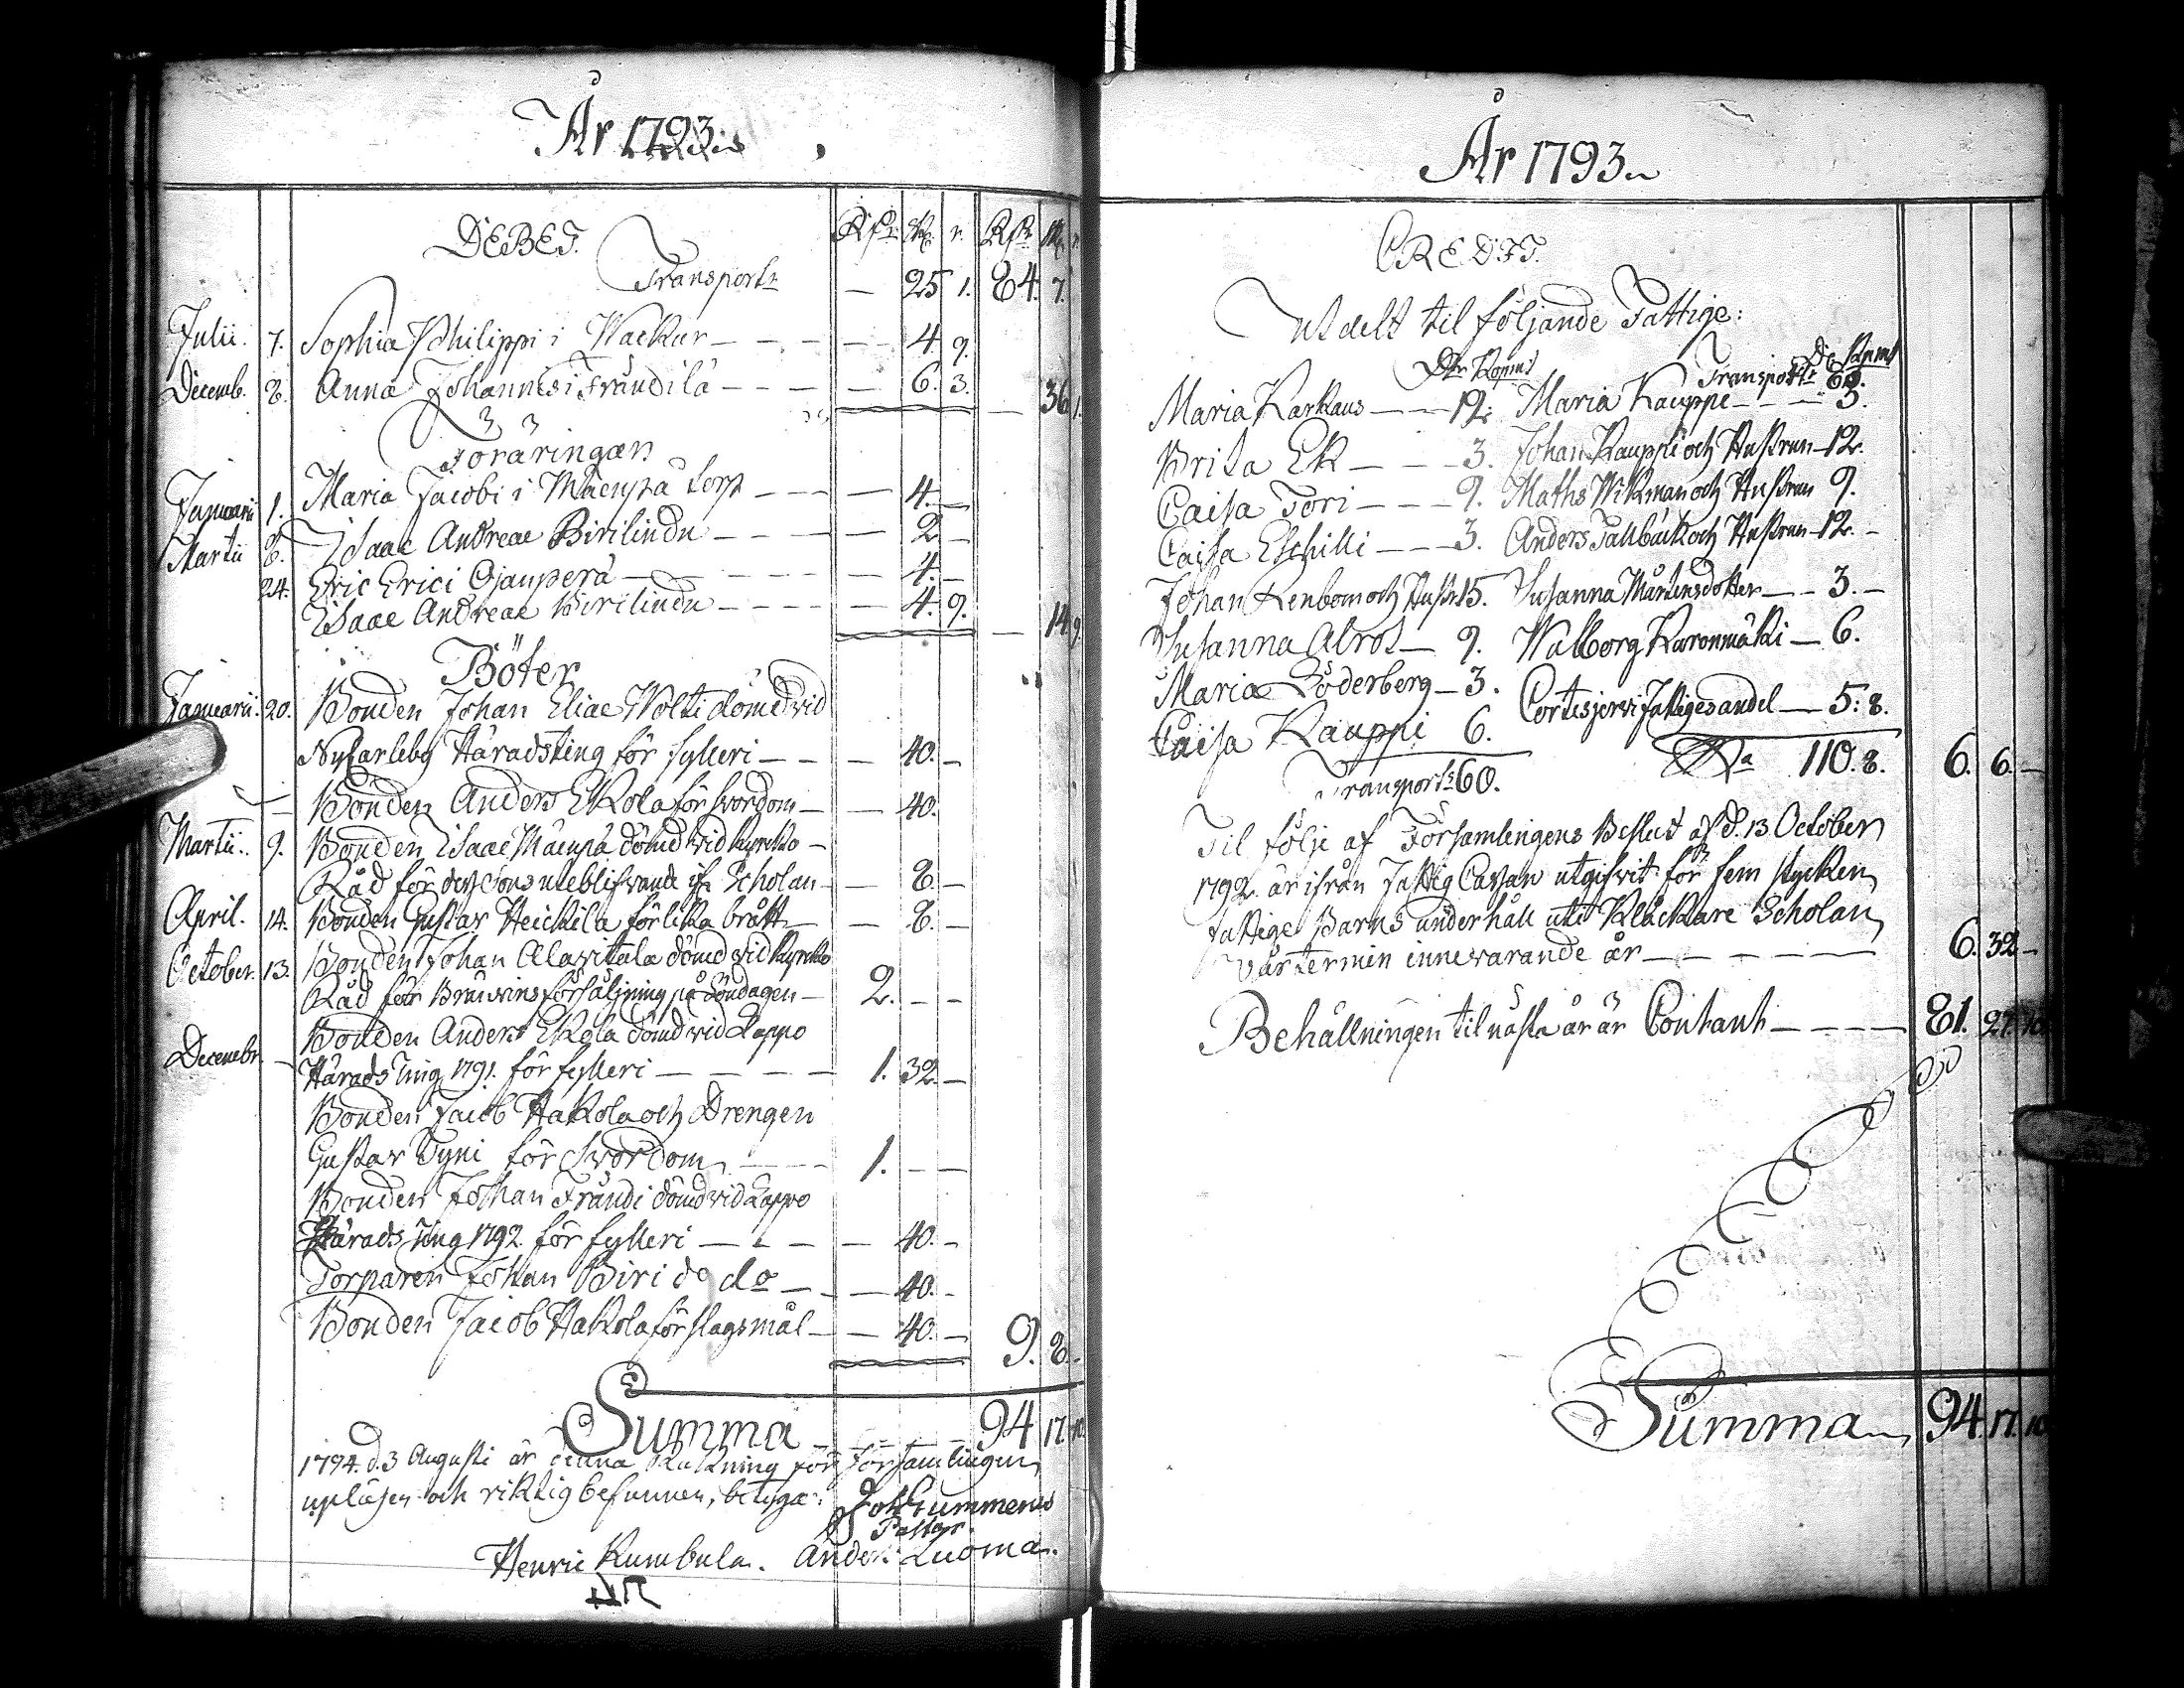 År 1793.
DEBET. Rdr sk. r. Rdr sk. r.
Transport: — 25 1. 84. 7.
Julii. 7. Sophia Philippi i Wackur — — — 4. 9.
Decemb. 8. Anna Johannis i Frändilä — — — 6. 3. — 36 1.
Föräringar
Januarii 1. Maria Jacobi i Mäenpä torp — — — 4. —
Martii 8. Isaac Andreae Birilindu — — — 2 —
24. Eric Erici Ojanperä — — — 4. —
Isaac Andreae Birilindu — — — 4. 9. — 14. 9.
Böter
Januarii. 20. Bonden Johan Eliae Wolti dömd vid
NyCarleby Häradsting för fylleri — — — 40. —
— Bonden Anders Ekola för svordom — — 40.
Martii. 9. Bonden Isaac Mäenpä dömd vid kyrcko —
Råd för dess sons uteblifvande ifr. Scholan — — 8. —
April. 14. Bonden Gustav Heickilä för lika brått — — 8. —
October. 13. Bonden Johan Alavitala dömd vid kyrcko
Råd för Bränvins försäljning på Söndagen — 2. — —
Decembr. — Bonden Anders Ekola dömd vid Lappo
Härads Ting 1791. för fylleri — — — 1. 32. —
Bonden Jacob Hakola och Drengen
Gustav Tyni för svordom — — — 1. — —
Bonden Johan Frändi dömd vid Lappo
Härads Ting 1792. för fylleri — — — 40. —
Torparen Johan Biri do do — — 40. —
Bonden Jacob Hakola för slagsmål — — 40. — 9. 8. —
Summa — — — 94. 17. 10.
1794. d. 3 Augusti är denna Räkning för Församlingen
upläsen och riktig befunnen, betyga:
Joh Gummerus
Pastor.
Henric Kumbula. Anders Luoma.
År 1793.
CREDIT.
Utdelt til följande Fattige:
Maria Karkaus — — 12. Transport: 60.
Maria Kauppi — — — 3.
Brita Ek — — — 3. Johan Kauppi och Hustrun — 12.
Caisa Tori — — — 9. Maths Wikman och Hustrun 9.
Caisa Eschilli — — 3. Anders Tallbäck och Hustrun — 12. —
Johan Renbom och Hustr. 15. Susanna Mårtensdotter — — 3. —
Susanna Alros — 9. Walborg Karonmäki — 6.
Maria Söderberg — 3. Cortesjerwi Fattiges andel — 5: 8.
Caisa Kauppi 6.
Transport: 60. 110. 8. 6. 6. —
Til följe af Församlingens Beslut af d. 13. October
1792 är ifrån Fattig Cassan utgifvit för fem stycken
fattige Barns underhåll uti Klåckare Scholan
vårtermin innevarande år — — — — — 6. 32 —
Behållningen til nästa år är Contant — — — — 81. 27. 10.
Summa 94. 17. 10